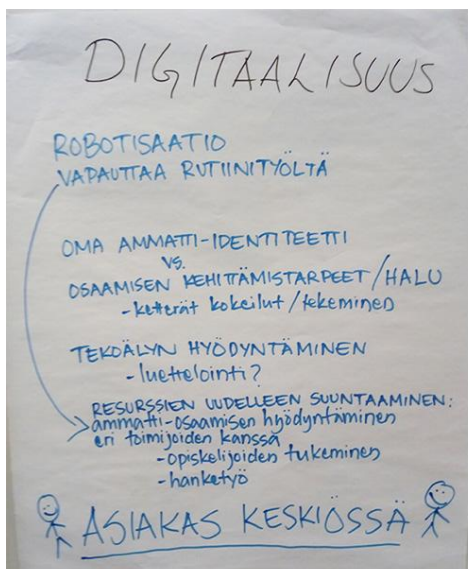 DIGITAALISUUS
ROBOTISAATIO
VAPAUTTAA RUTIINITYÖLTÄ
OMA AMMATTI-IDENTITEETTI
VS.
OSAAMISEN KEHITTÄMISTARPEET/HALU
- ketterät kokeilut/tekeminen
TEKOÄLYN HYÖDYNTÄMINEN
- luettelointi?
RESURSSIEN UUDELLEEN SUUNTAAMINEN:
ammatti-osaamisen hyödyntäminen
eri toimijoiden kanssa
- opiskelijoiden tukeminen
- hanketyö
ASIAKAS KESKIÖSSÄ